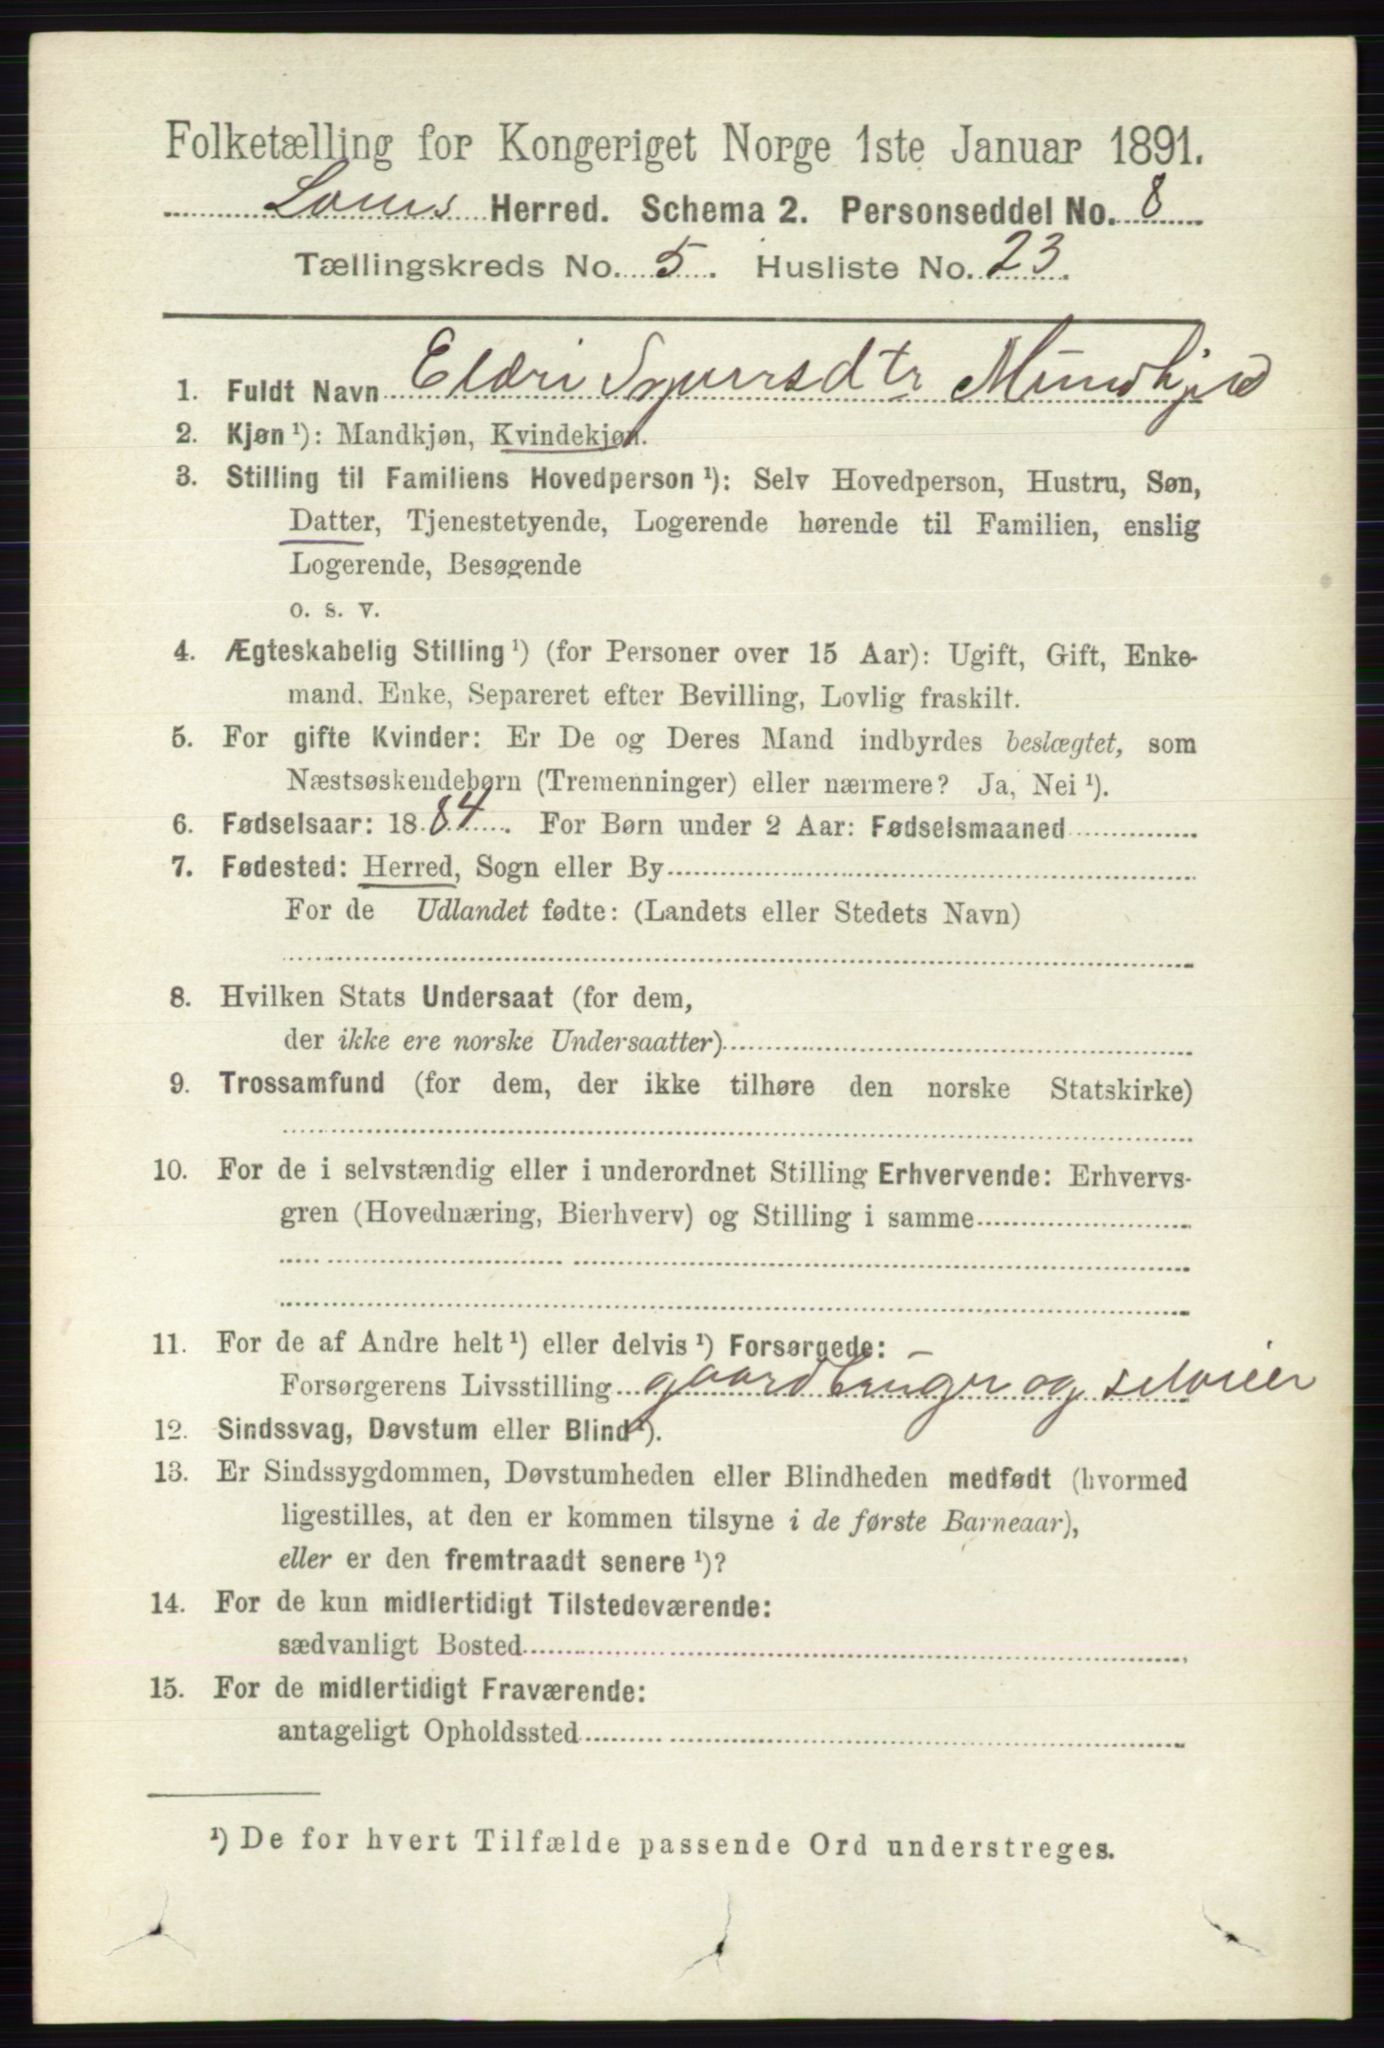 Folketælling for Kongeriget Norge 1ste Januar 1891.
Loms Herred. Schema 2. Personseddel No. 8
Tællingskreds No. 5. Husliste No. 23.
1. Fuldt Navn Eldri Syversdtr Mundhjeld
2. Kjøn ¹): Mandkjøn, Kvindekjøn.
3. Stilling til Familiens Hovedperson ¹): Selv Hovedperson, Hustru, Søn,
Datter, Tjenestetyende, Logerende hørende til Familien, enslig
Logerende, Besøgende
o. s. v.
4. Ægteskabelig Stilling ¹) (for Personer over 15 Aar): Ugift, Gift, Enke-
mand. Enke, Separeret efter Bevilling, Lovlig fraskilt.
5. For gifte Kvinder: Er De og Deres Mand indbyrdes beslægtet, som
Næstsøskendebørn (Tremenninger) eller nærmere? Ja, Nei ¹).
6. Fødselsaar: 1884. For Børn under 2 Aar: Fødselsmaaned
7. Fødested: Herred, Sogn eller By
For de Udlandet fødte: (Landets eller Stedets Navn)
8. Hvilken Stats Undersaat (for dem,
der ikke ere norske Undersaatter)
9. Trossamfund (for dem, der ikke tilhøre den norske Statskirke)
10. For de i selvstændig eller i underordnet Stilling Erhvervende: Erhvervs-
gren (Hovednæring, Bierhverv) og Stilling i samme
11. For de af Andre helt ¹) eller delvis ¹) Forsørgede:
Forsørgerens Livsstilling gaardbruger og selveier
12. Sindssvag, Døvstum eller Blind ¹).
13. Er Sindssygdommen, Døvstumheden eller Blindheden medfødt (hvormed
ligestilles, at den er kommen tilsyne i de første Barneaar),
eller er den fremtraadt senere ¹)?
14. For de kun midlertidigt Tilstedeværende:
sædvanligt Bosted
15. For de midlertidigt Fraværende:
antageligt Opholdssted
¹) De for hvert Tilfælde passende Ord understreges.